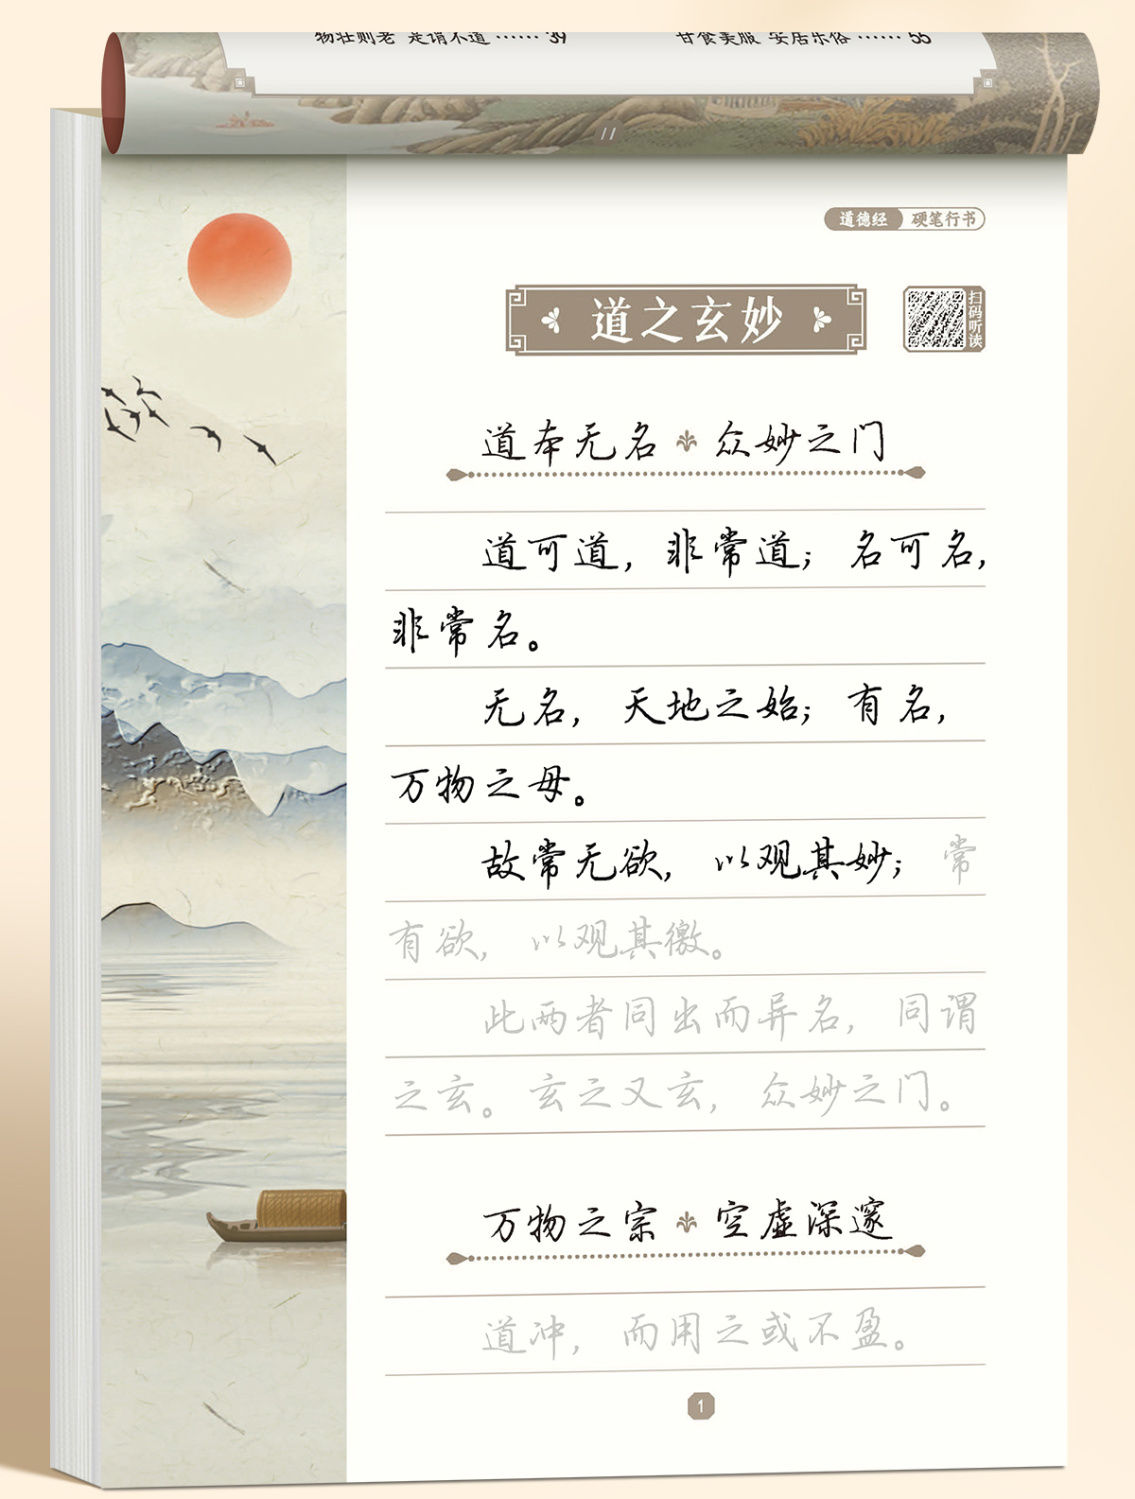 物壮则老 是谓不道 …… 39
甘食美服 安居乐俗 …… 55
道德经 硬笔行书
道之玄妙
扫码听读
道本无名 众妙之门
道可道，非常道；名可名，
非常名。
无名，天地之始；有名，
万物之母。
故常无欲，以观其妙；常
有欲，以观其徼。
此两者同出而异名，同谓
之玄。玄之又玄，众妙之门。
万物之宗 空虚深邃
道冲，而用之或不盈。
1